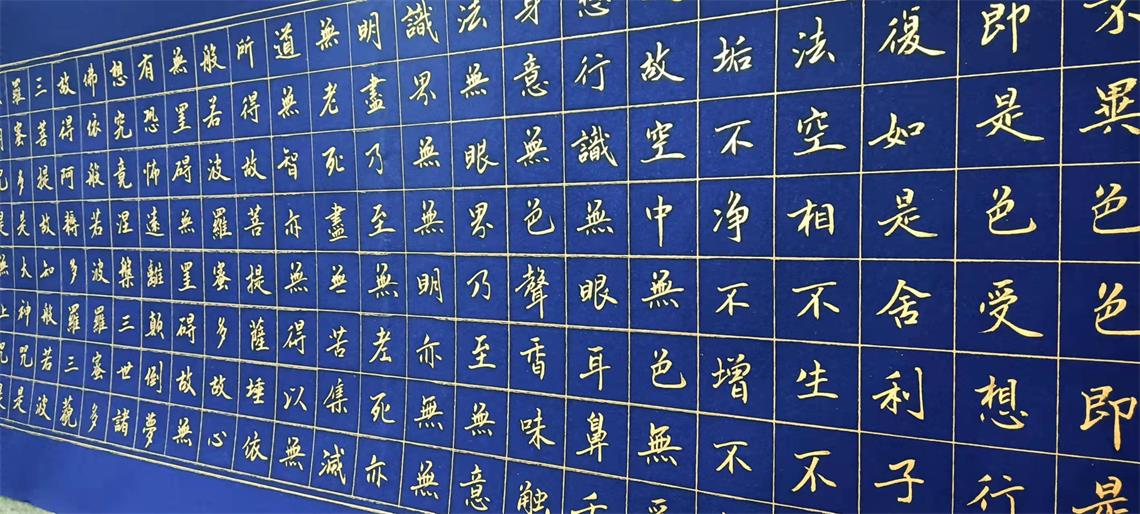 不異色色即是
即是色受想行
復如是舍利子
法空相不生不
垢不净不增不
故空中無色無
想行識無眼耳鼻
身意無色聲香味觸
法無眼界乃至無意
識界無無明亦無無
明盡乃至無老死亦
無老死盡無苦集滅
道無智亦無得以無
所得故菩提薩埵依
般若波羅蜜多故心
無罣碍無罣碍故無
有恐怖遠離顛倒夢
想究竟涅槃三世諸
佛依般若波羅蜜多
故得阿耨多羅三藐
三菩提故知般若波
羅蜜多是大神咒是